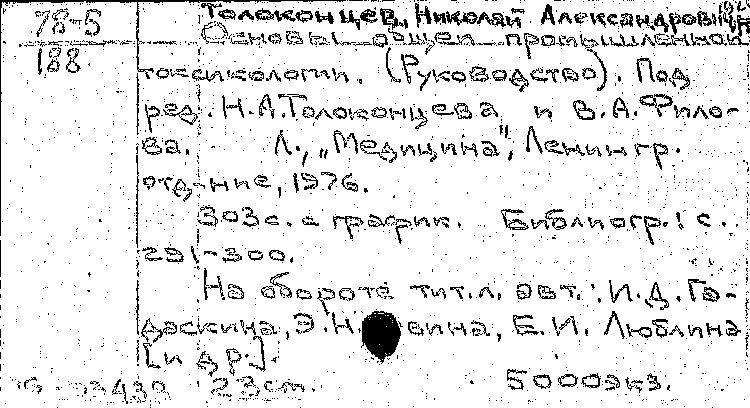 78-5
188
Толоконцев, Николай Александрович
Основы общей промышленной
токсикологии. (Руководство). Под
ред. Н.А.Толоконцева и В.А.Фило-
ва. Л., „Медицина", Ленингр.
отд-ние, 1976.
303с. с график. Библиогр.: с.
291-300.
На обороте тит.л. авт.: И.Д.Га-
даскина, Э.Н. вина, Е.И. Люблина
[и др.].
23см. 5000экз.